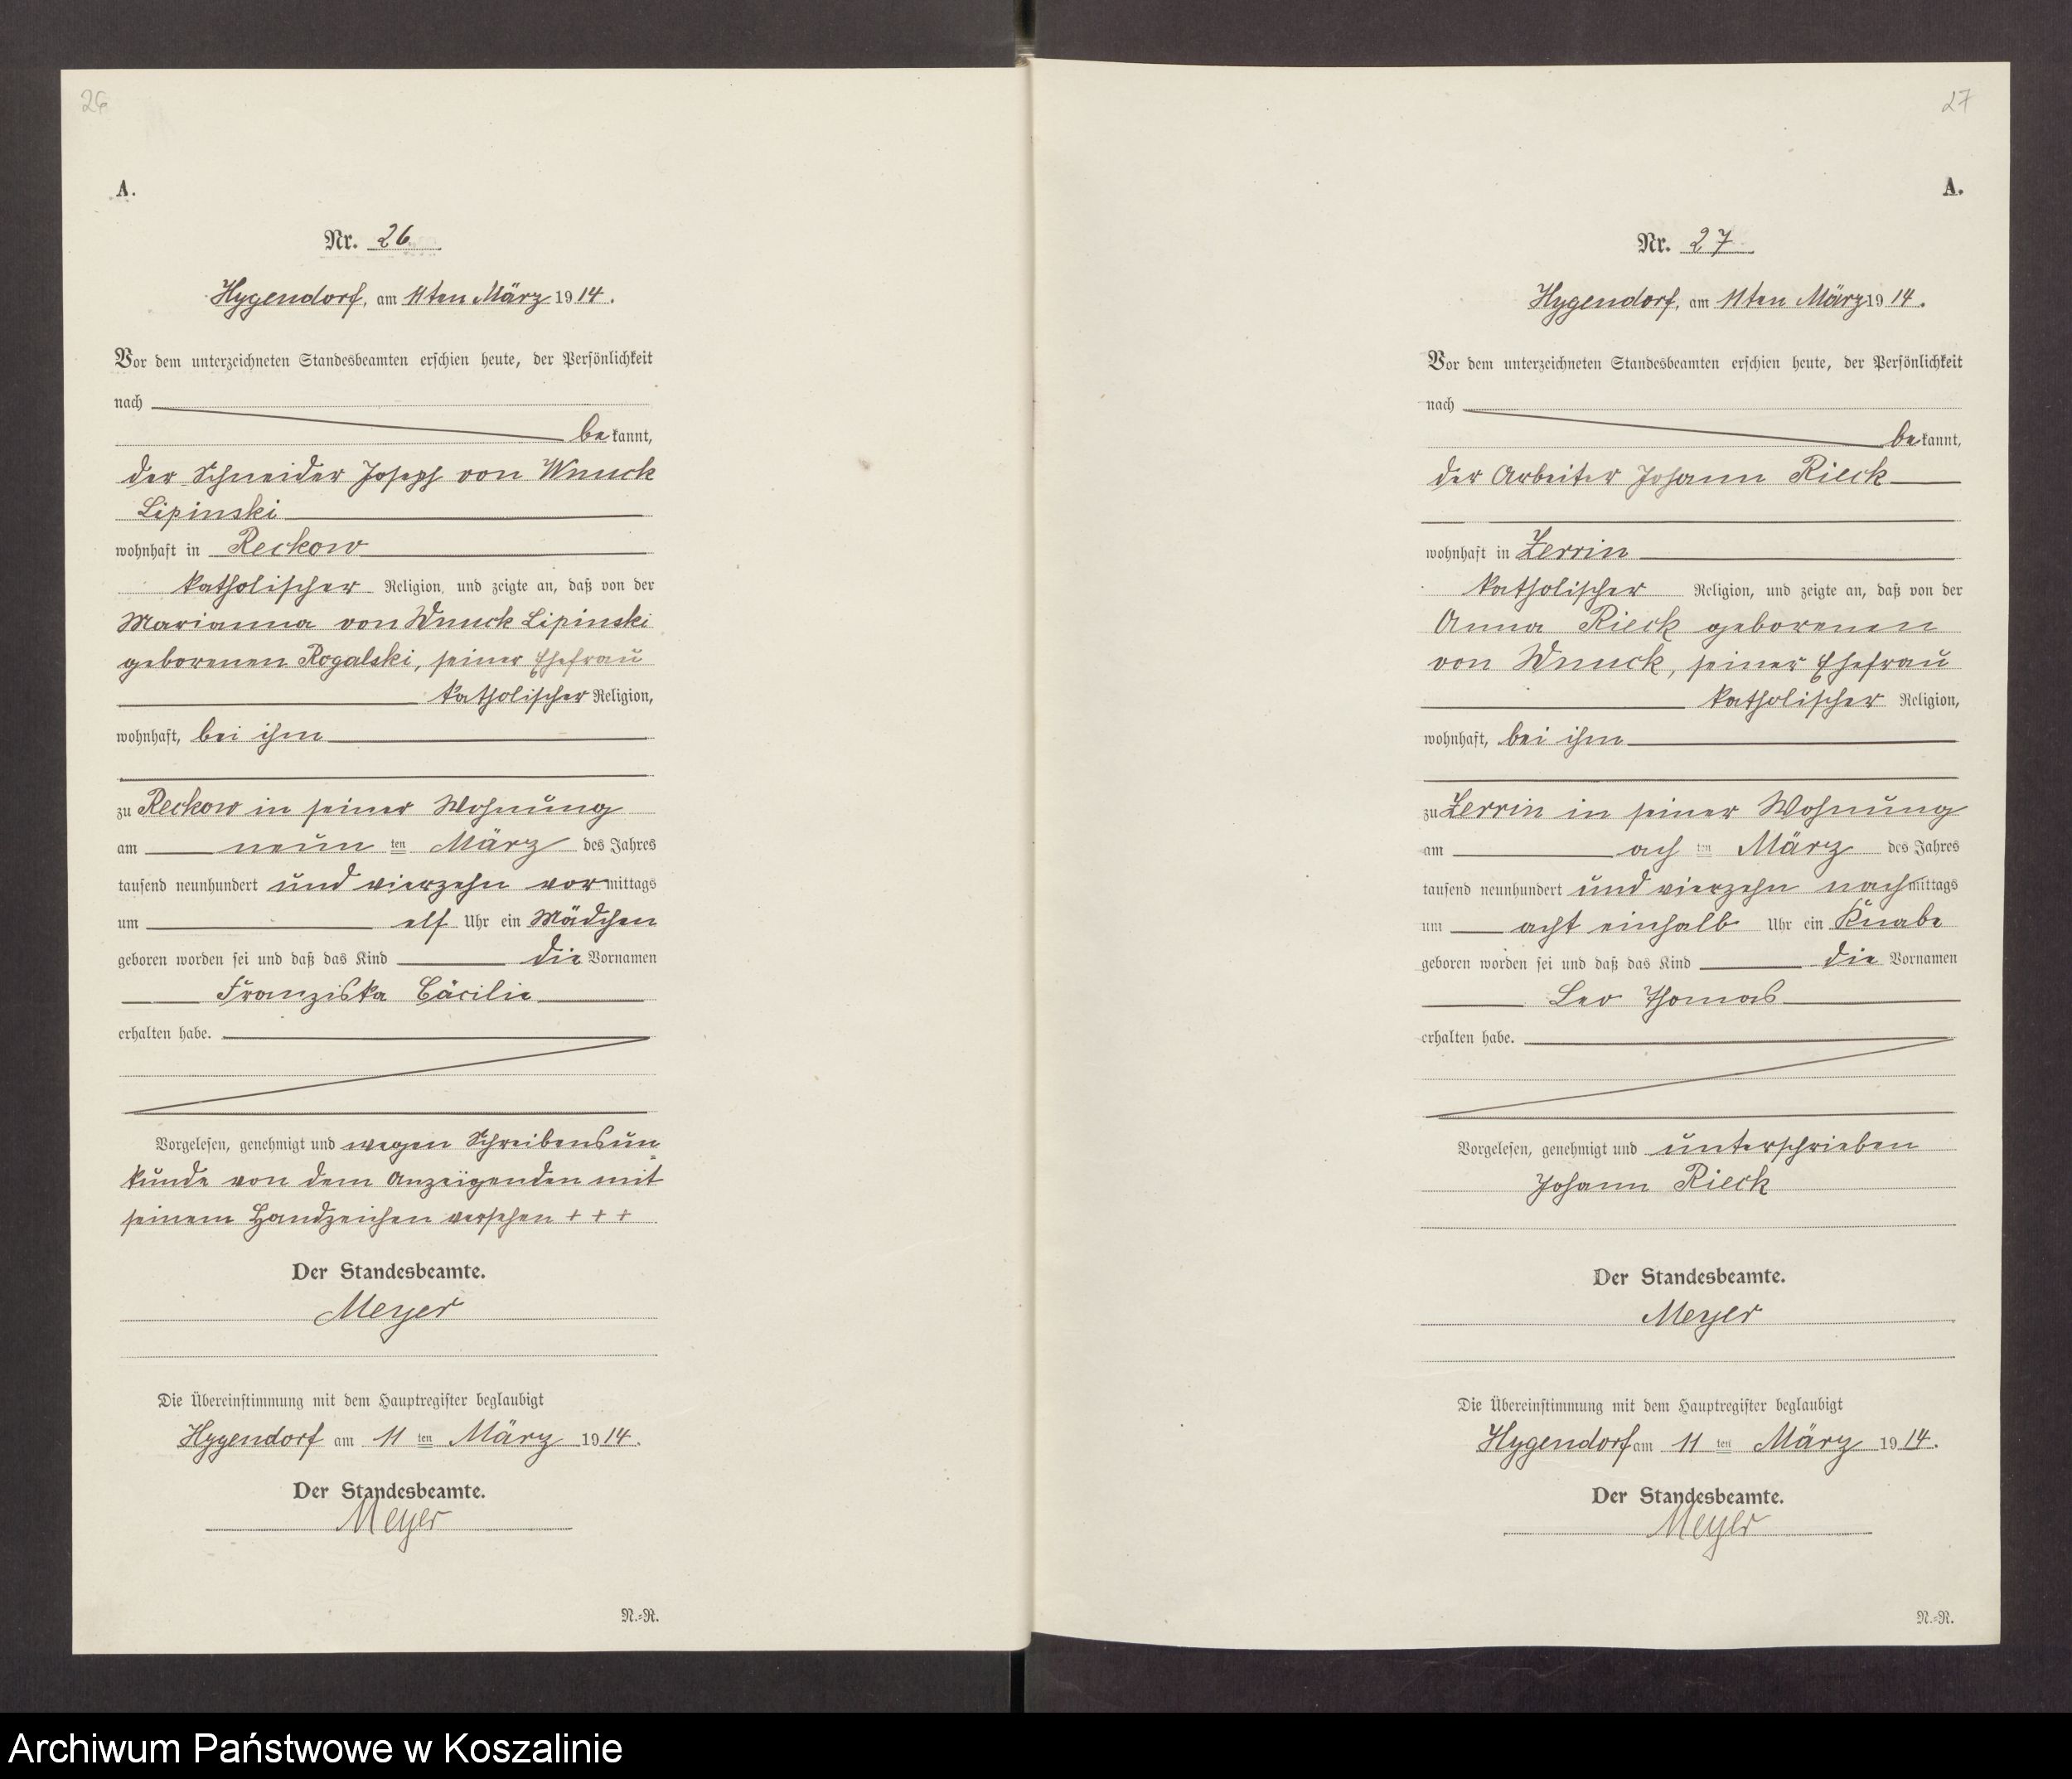 26
A.
Nr. 26
Hygendorf, am 11ten März 1914.
Vor dem unterzeichneten Standesbeamten erschien heute, der Persönlichkeit
nach
bekannt,
der Schneider Joseph von Wnuck
Lipinski
wohnhaft in Reckow
katholischer Religion, und zeigte an, daß von der
Marianna von Wnuck Lipinski
geborenen Rogalski, seiner Ehefrau
katholischer Religion,
wohnhaft, bei ihm
zu Reckow in seiner Wohnung
am neun ten März des Jahres
tausend neunhundert und vierzehn vormittags
um elf Uhr ein Mädchen
geboren worden sei und daß das Kind die Vornamen
Franziska Cäcilie
erhalten habe.
Vorgelesen, genehmigt und wegen Schreibensun-
kunde von dem Anzeigenden mit
seinem Handzeichen versehen + + +
Der Standesbeamte.
Meyer
Die Übereinstimmung mit dem Hauptregister beglaubigt
Hygendorf am 11 ten März 1914.
Der Standesbeamte.
Meyer
N.-R.
27
A.
Nr. 27
Hygendorf, am 11ten März 1914.
Vor dem unterzeichneten Standesbeamten erschien heute, der Persönlichkeit
nach
bekannt,
der Arbeiter Johann Rieck
wohnhaft in Zerrin
katholischer Religion, und zeigte an, daß von der
Anna Rieck geborenen
von Wnuck, seiner Ehefrau
katholischer Religion,
wohnhaft, bei ihm
zu Zerrin in seiner Wohnung
am ach ten März des Jahres
tausend neunhundert und vierzehn nachmittags
um acht einhalb Uhr ein Knabe
geboren worden sei und daß das Kind die Vornamen
Leo Thomas
erhalten habe.
Vorgelesen, genehmigt und unterschrieben
Johann Rieck
Der Standesbeamte.
Meyer
Die Übereinstimmung mit dem Hauptregister beglaubigt
Hygendorf am 11 ten März 1914.
Der Standesbeamte.
Meyer
N.-R.
Archiwum Państwowe w Koszalinie